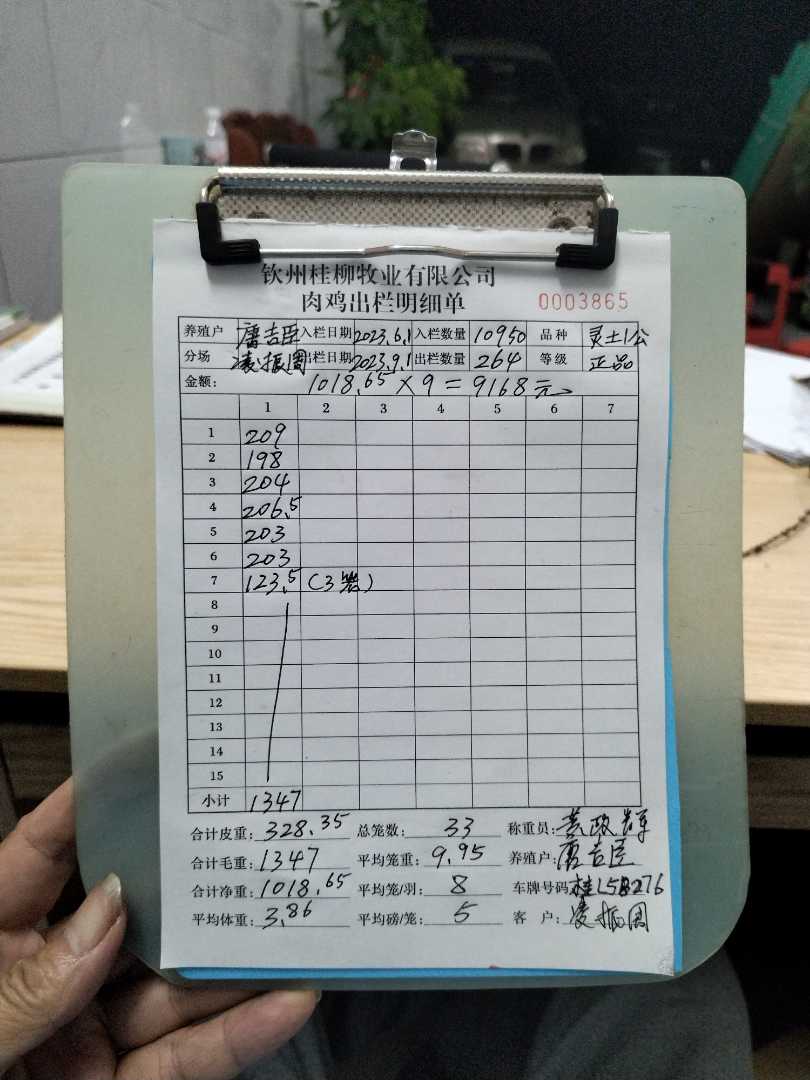 钦州桂柳牧业有限公司
肉鸡出栏明细单
0003865
养殖户 唐吉臣 入栏日期 2023.6.1 入栏数量 10950 品种 灵土1公
分场 凌振周 出栏日期 2023.9.1 出栏数量 264 等级 正品
金额: 1018.65×9=9168元
1 2 3 4 5 6 7
1 209
2 198
3 204
4 206.5
5 203
6 203
7 123.5 (3笼)
8
9
10
11
12
13
14
15
小计 1347
合计皮重: 328.35 总笼数: 33 称重员: 黄政
合计毛重: 1347 平均笼重: 9.95 养殖户: 唐吉臣
合计净重: 1018.65 平均笼/羽: 8 车牌号码 桂L5B276
平均体重: 3.86 平均磅/笼: 5 客户: 凌振周